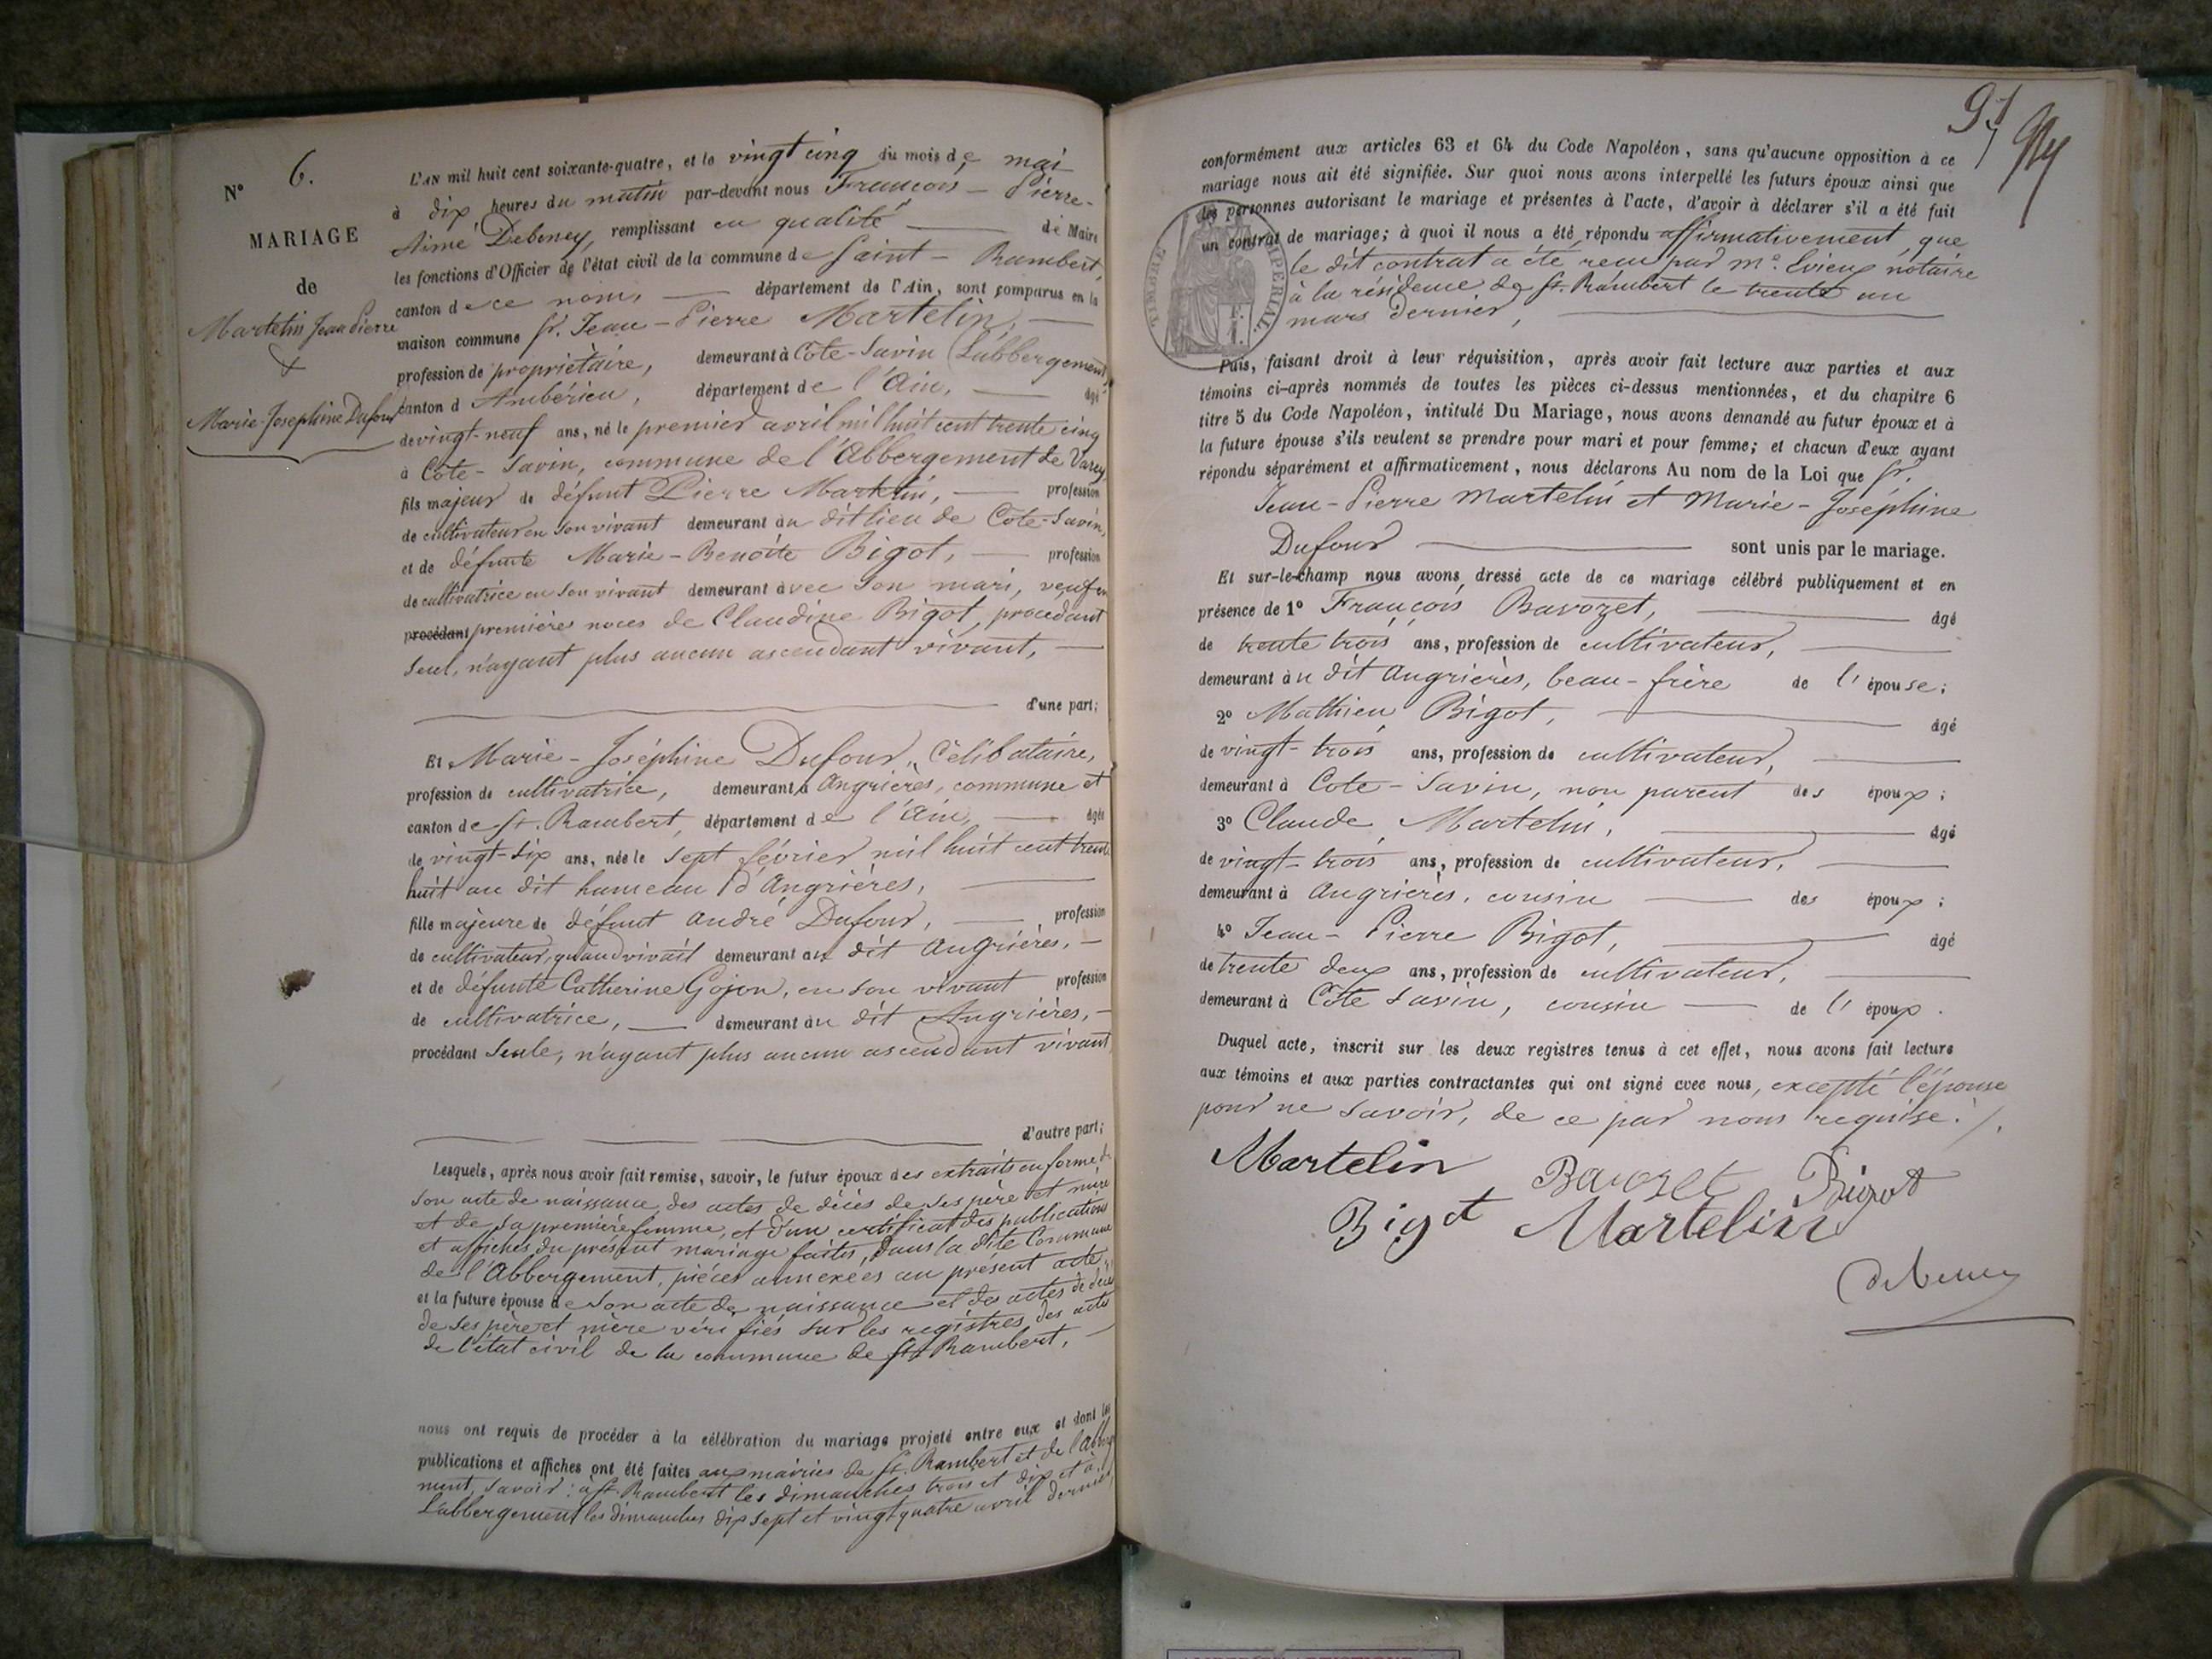 N° 6.
MARIAGE
de
Martelin Jean Pierre
&
Marie-Josephine Dufour
L'AN mil huit cent soixante-quatre, et le vingt cinq du mois de mai
à dix heures du matin par-devant nous François-Pierre-
Aimé Debeney, remplissant en qualité de Maire
les fonctions d'Officier de l'état civil de la commune de Saint-Rambert,
canton de ce nom, département de l'Ain, sont comparus en la
maison commune Sr. Jean-Pierre Martelin,
profession de propriétaire, demeurant à Côte-Savin (L'abbergement)
canton d'Ambérieu, département de l'Ain, âgé
de vingt-neuf ans, né le premier avril mil huit cent trente cinq
à Côte-Savin, commune de l'Abbergement de Varey
fils majeur de défunt Pierre Martelin, profession
de cultivateur en son vivant demeurant au dit lieu de Côte-Savin,
et de défunte Marie-Benoîte Bigot, profession
de cultivatrice en son vivant demeurant avec son mari, veuf en
procédant premières noces de Claudine Bigot, procédant
seul, n'ayant plus aucun ascendant vivant,
d'une part;
Et Marie-Joséphine Dufour, Célibataire,
profession de cultivatrice, demeurant à Angrières, commune et
canton de St. Rambert, département de l'Ain, âgée
de vingt-six ans, née le sept février mil huit cent trente
huit au dit hameau d'Angrières,
fille majeure de défunt André Dufour, profession
de cultivateur, quand vivait demeurant au dit Angrières,
et de défunte Catherine Gojon, en son vivant profession
de cultivatrice, demeurant au dit Angrières,
procédant seule, n'ayant plus aucun ascendant vivant
d'autre part;
Lesquels, après nous avoir fait remise, savoir, le futur époux des extraits en forme de
son acte de naissance, des actes de décès de ses père et mère
et de sa première femme, et d'un certificat des publications
et affiches du présent mariage faites, dans la dite Commune
de l'Abbergement, pièces annexées au présent acte,
et la future épouse de son acte de naissance et des actes de décès
de ses père et mère vérifiés sur les registres des actes
de l'état civil de la commune de St. Rambert,
nous ont requis de procéder à la célébration du mariage projeté entre eux et dont les
publications et affiches ont été faites aux mairies de St. Rambert et de l'Abberge
ment, savoir: à St. Rambert les dimanches trois et dix et à
L'abbergement les dimanches dix sept et vingt quatre avril dernier
91
conformément aux articles 63 et 64 du Code Napoléon, sans qu'aucune opposition à ce
mariage nous ait été signifiée. Sur quoi nous avons interpellé les futurs époux ainsi que
les personnes autorisant le mariage et présentes à l'acte, d'avoir à déclarer s'il a été fait
un contrat de mariage; à quoi il nous a été répondu affirmativement, que
le dit contrat a été reçu par Me. Evieux notaire
à la résidence de St. Rambert le trente un
mars dernier,
TIMBRE IMPERIAL.
Puis, faisant droit à leur réquisition, après avoir fait lecture aux parties et aux
témoins ci-après nommés de toutes les pièces ci-dessus mentionnées, et du chapitre 6
titre 5 du Code Napoléon, intitulé Du Mariage, nous avons demandé au futur époux et à
la future épouse s'ils veulent se prendre pour mari et pour femme; et chacun d'eux ayant
répondu séparément et affirmativement, nous déclarons Au nom de la Loi que Sr.
Jean-Pierre Martelin et Marie-Joséphine
Dufour sont unis par le mariage.
Et sur-le-champ nous avons dressé acte de ce mariage célébré publiquement et en
présence de 1° François Bavozet, âgé
de trente trois ans, profession de cultivateur,
demeurant au dit Angrières, beau-frère de l'épouse;
2° Mathieu Bigot, âgé
de vingt-trois ans, profession de cultivateur,
demeurant à Cote-Savin, non parent des époux;
3° Claude Martelin, âgé
de vingt-trois ans, profession de cultivateur,
demeurant à Angrières, cousin des époux;
4° Jean-Pierre Bigot, âgé
de trente deux ans, profession de cultivateur,
demeurant à Côte Savin, cousin de l'époux.
Duquel acte, inscrit sur les deux registres tenus à cet effet, nous avons fait lecture
aux témoins et aux parties contractantes qui ont signé avec nous, excepté l'épouse
pour ne savoir, de ce par nous requise./.
Martelin Bavozet Bigot
Bigot Martelin
Debeney